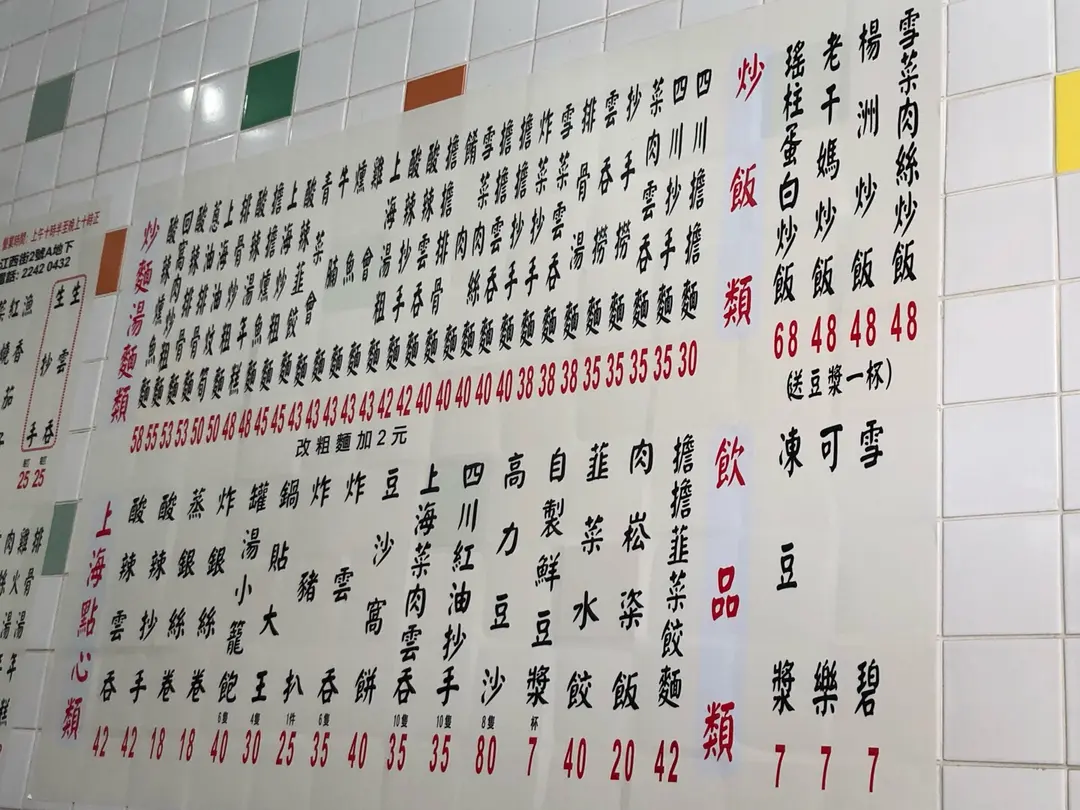 營業時間:上午十時半至晚上十時正
江西街2號A地下
電話: 2242 0432
生抄手
25
生雲吞
25
炒麵湯麵類
酸辣燻魚麵 58
回窩肉炒粗麵 55
酸辣排骨麵 53
蔥油排骨麵 53
上海油炆筍 50
排骨炒粗麵 50
酸辣湯年糕 48
擔擔燻魚麵 48
上海炒粗麵 45
酸辣韮餃麵 45
青菜會麵 43
牛腩麵 43
燻魚麵 43
雞會麵 43
上海湯粗麵 43
酸辣抄手麵 42
酸辣雲吞麵 42
擔擔排骨麵 40
餚肉麵 40
雪菜肉絲麵 40
擔擔雲吞麵 40
擔擔抄手麵 40
炸菜抄手麵 38
雪菜雲吞麵 38
排骨湯麵 38
雲吞撈麵 35
抄手撈麵 35
菜肉雲吞麵 35
四川抄手麵 35
四川擔擔麵 30
改粗麵加2元
炒飯類
瑤柱蛋白炒飯 68
老干媽炒飯 48
楊洲炒飯 48
雪菜肉絲炒飯 48
(送豆漿一杯)
上海點心類
酸辣雲吞 42
酸辣抄手 42
蒸銀絲卷 18
炸銀絲卷 18
罐湯小籠飽 6隻 40
鍋貼大王 4隻 30
炸豬扒 1件 25
炸雲吞 6隻 35
豆沙窩餅 40
上海菜肉雲吞 10隻 35
四川紅油抄手 10隻 35
高力豆沙 8隻 80
自製鮮豆漿 杯 7
韮菜水餃 40
肉崧粢飯 20
擔擔韮菜餃麵 42
飲品類
凍豆漿 7
可樂 7
雪碧 7